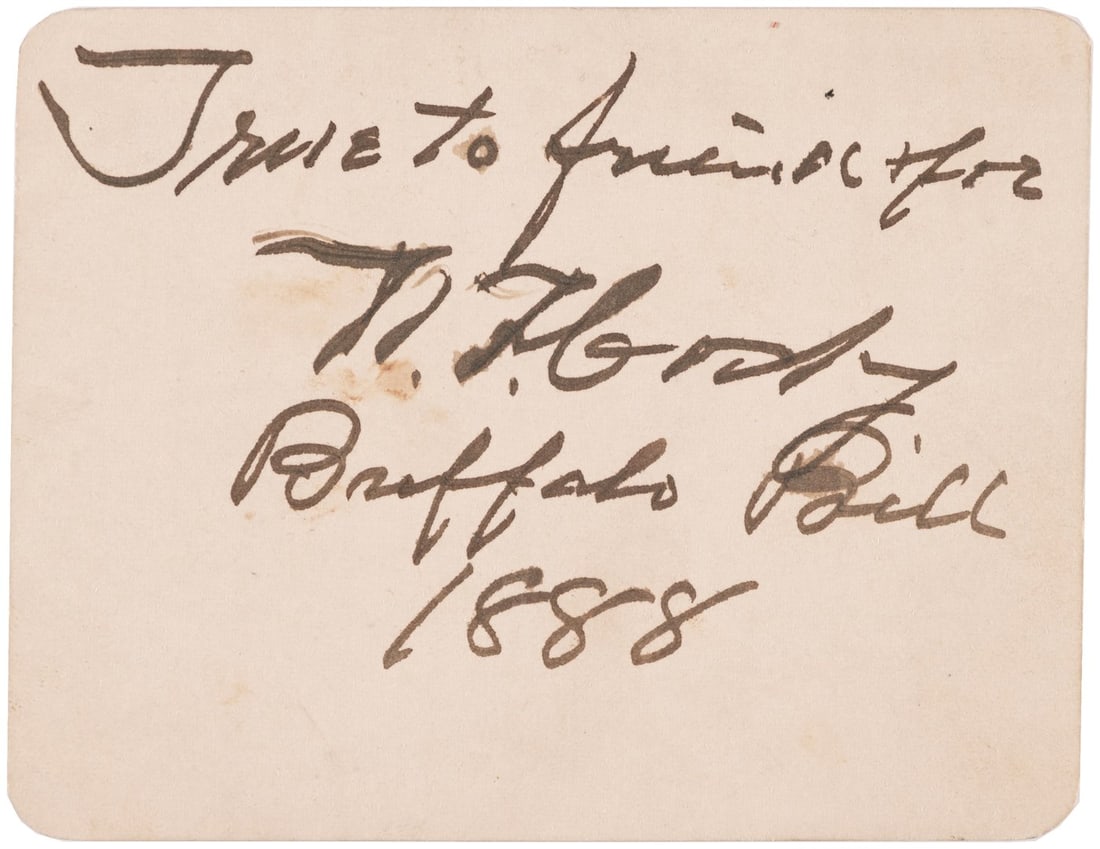 True to friend or foe
W. F. Cody
Buffalo Bill
1888